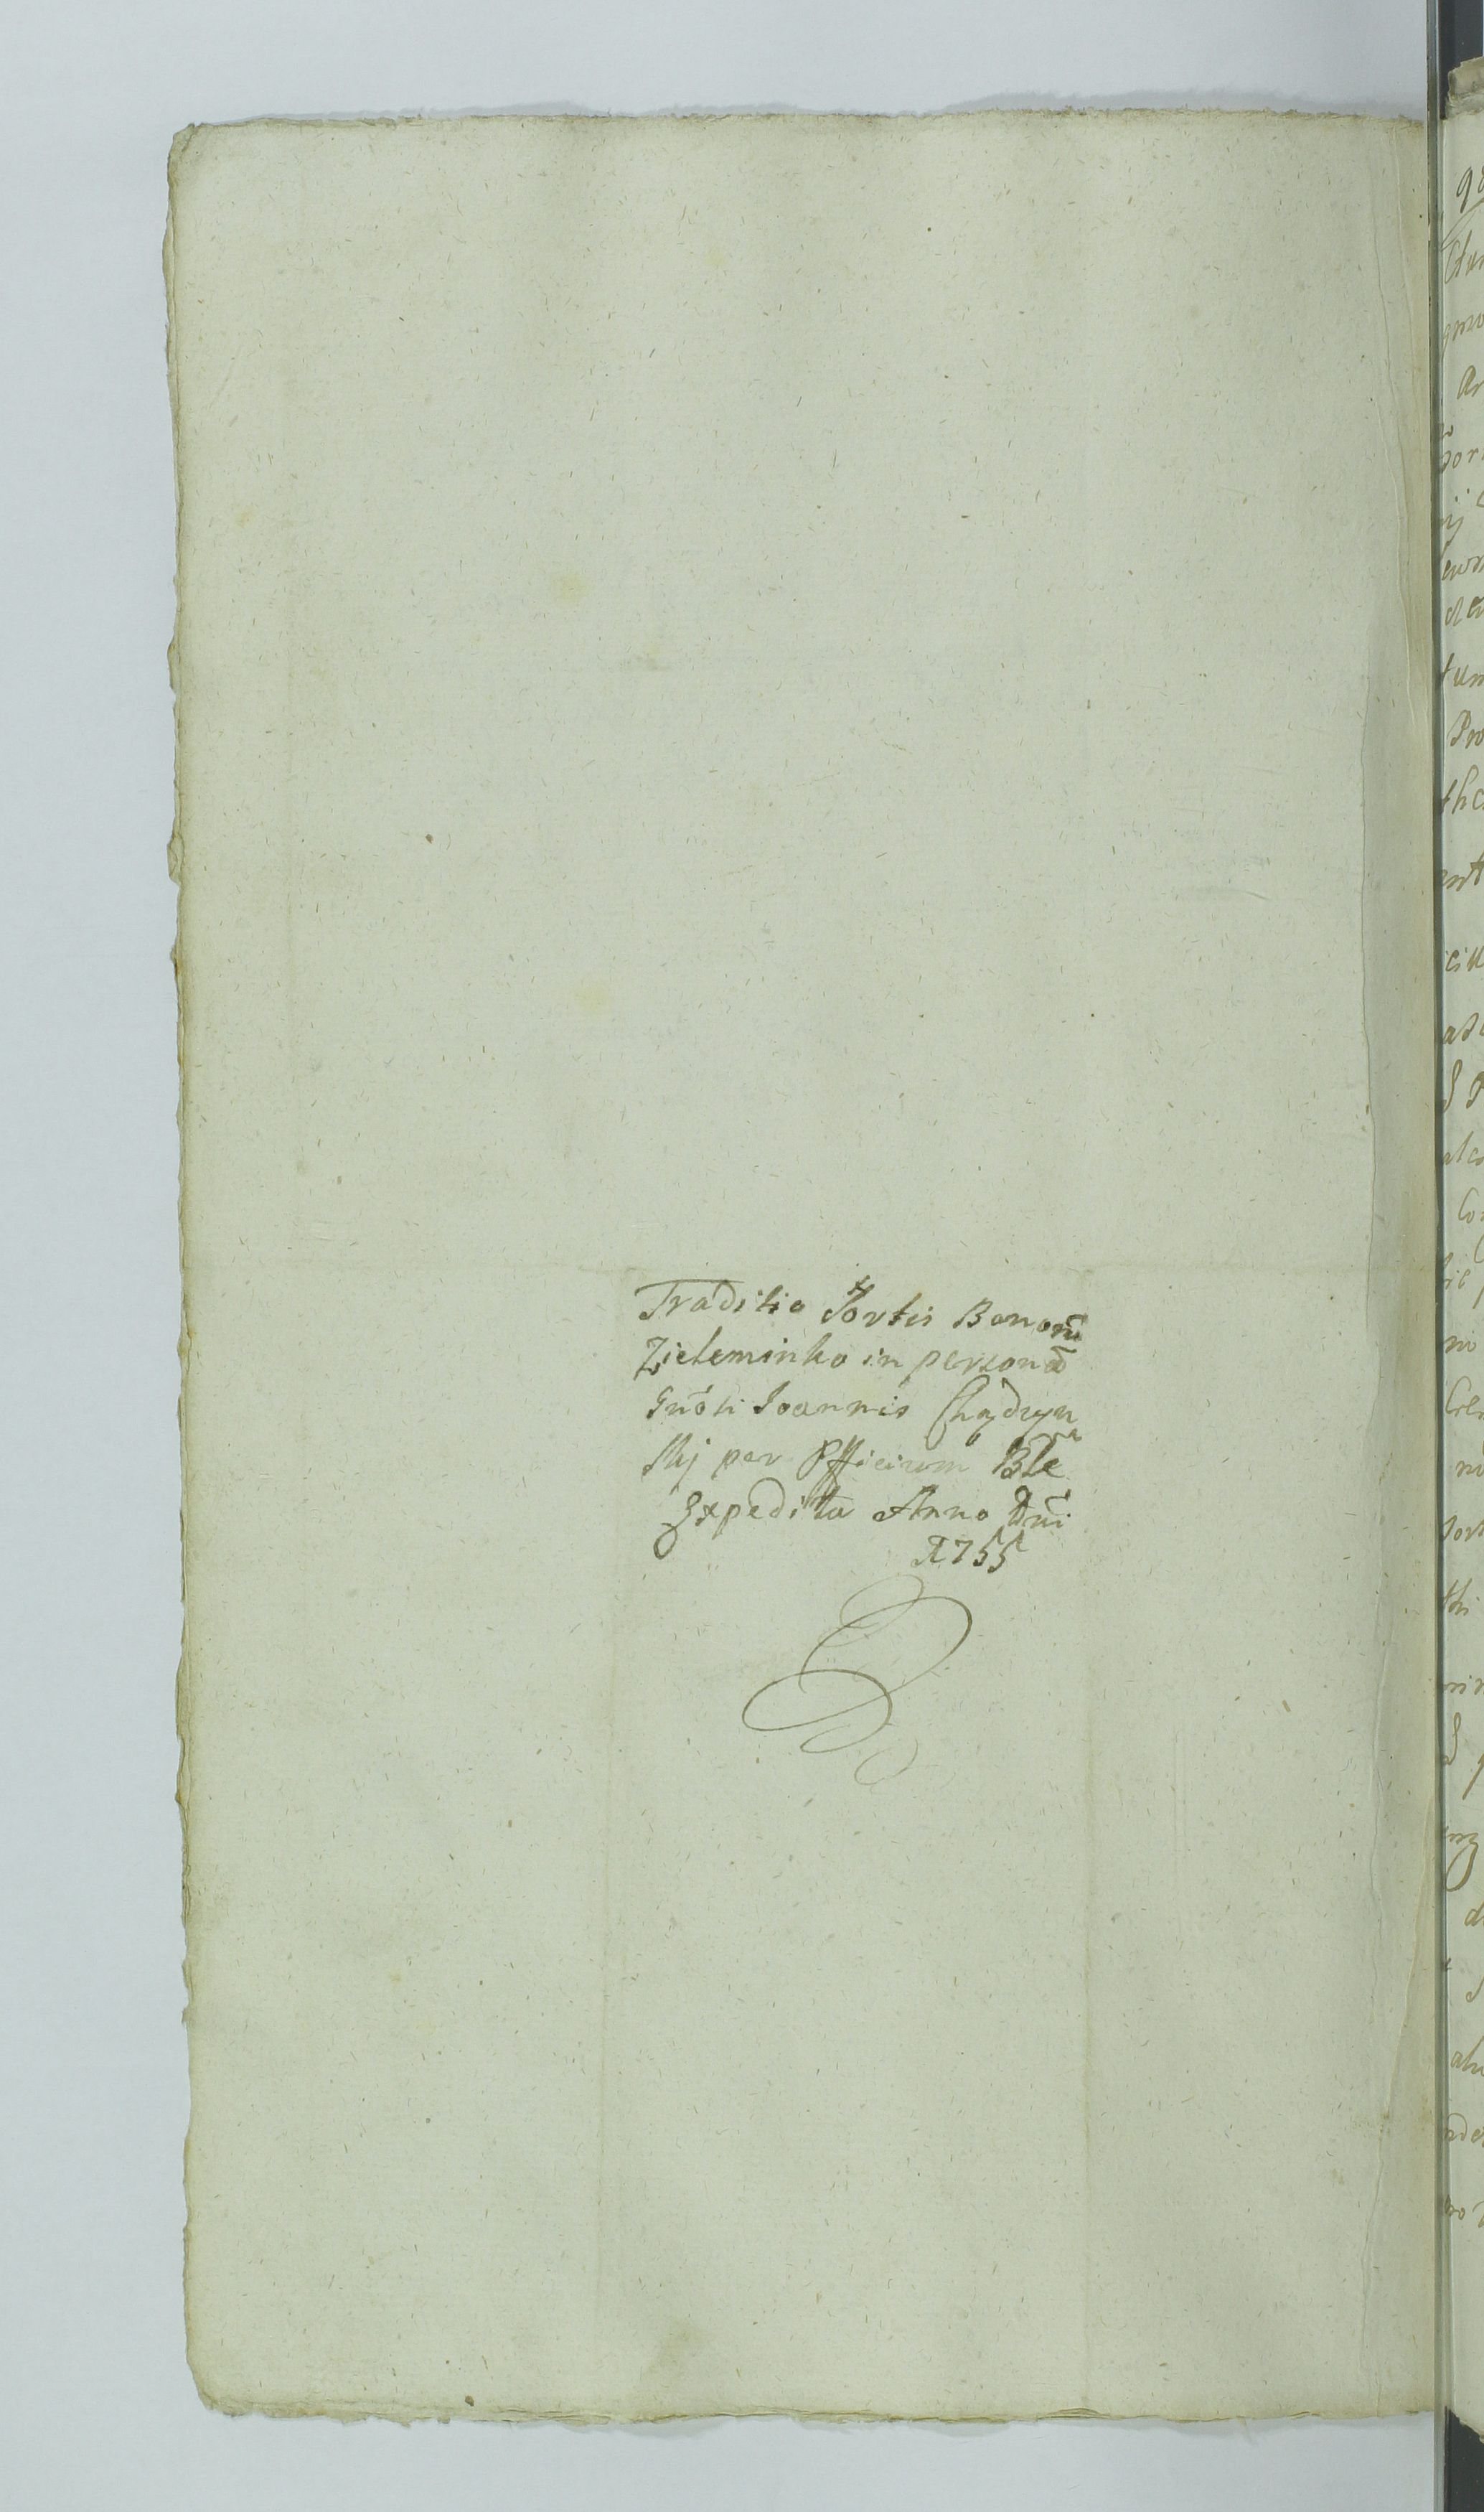 Traditio Sortis Bonorũ
Zieleminko in personã
Gnõsi Joannis Chądzyn
skj per Officium Blẽ
Expedita Anno Dñi
1755